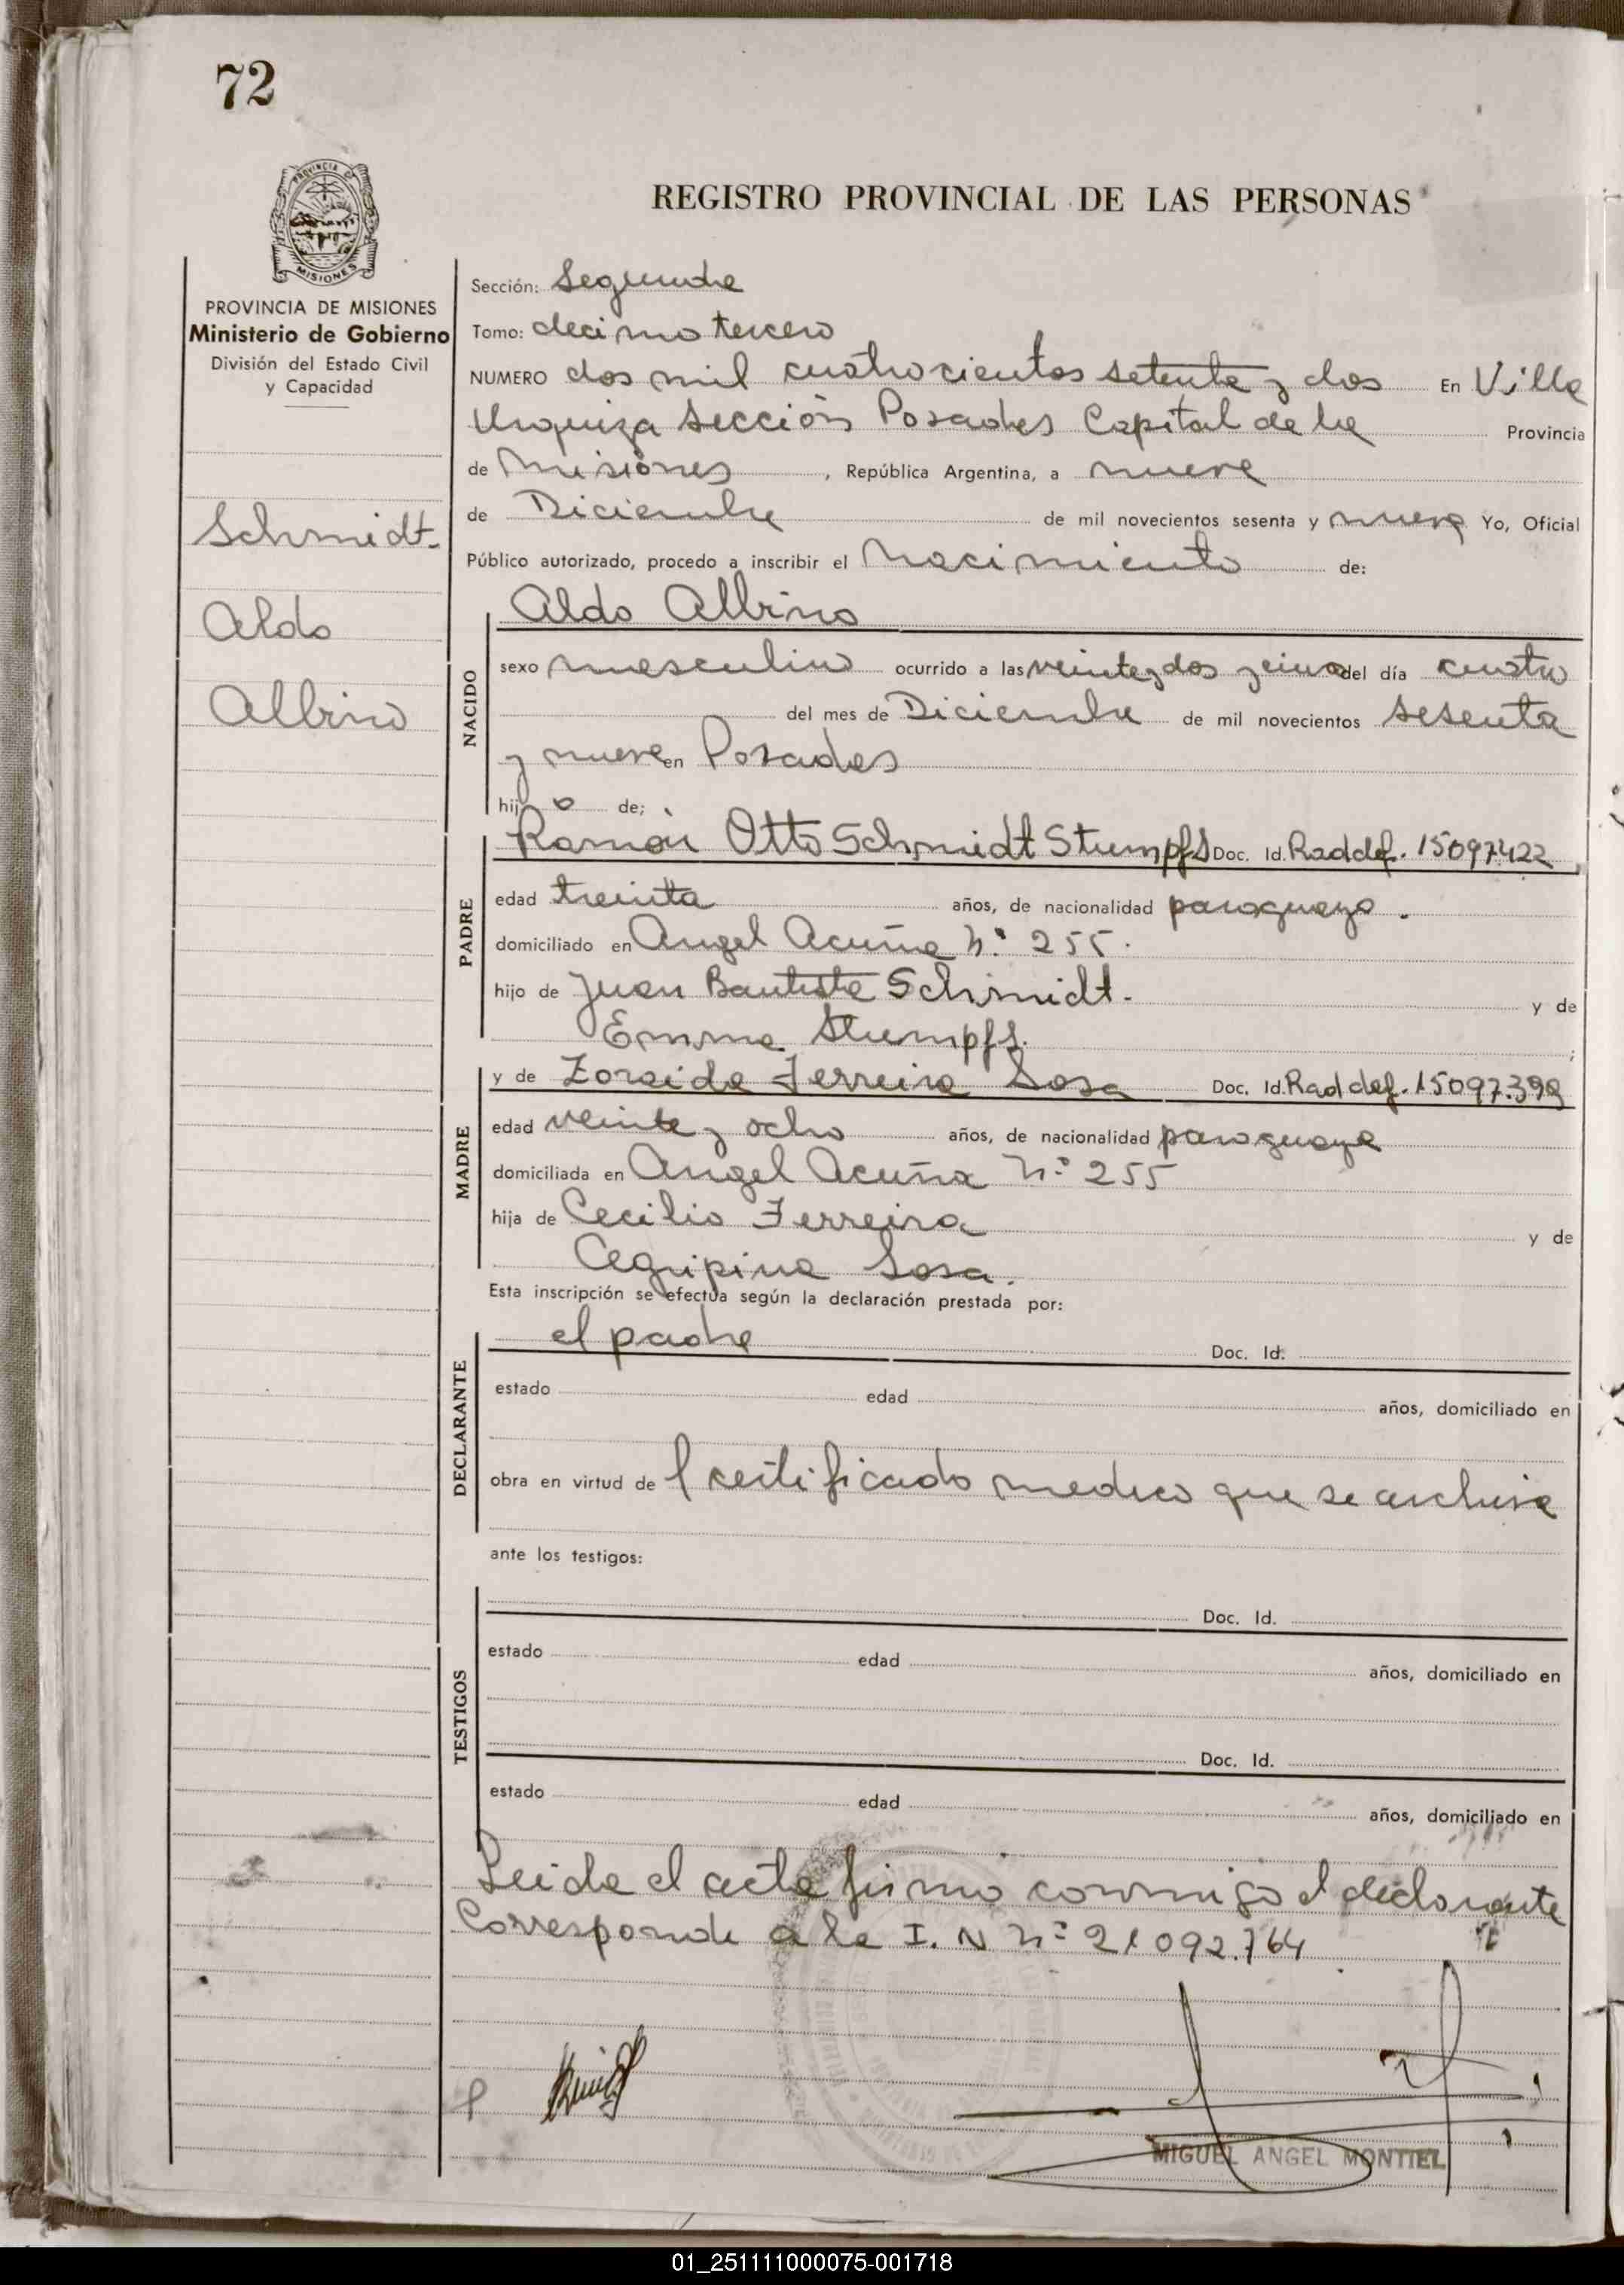 72
PROVINCIA DE
MISIONES
REGISTRO PROVINCIAL DE LAS PERSONAS
PROVINCIA DE MISIONES
Ministerio de Gobierno
División del Estado Civil
y Capacidad
Schmidt.
Aldo
Albino
Sección: Segunda
Tomo: decimo tercero
NUMERO dos mil cuatrocientos setenta y dos En Villa
Urquiza Sección Posadas Capital de la Provincia
de Misiones, República Argentina, a nueve
de Diciembre de mil novecientos sesenta y nueve Yo, Oficial
Público autorizado, procedo a inscribir el Nacimiento de:
NACIDO
Aldo Albino
sexo masculino ocurrido a las veinte y dos y cinco del día cuatro
del mes de Diciembre de mil novecientos sesenta
y nueve en Posadas
hijo de;
PADRE
Ramón Otto Schmidt Stumpfs Doc. Id. Rad def. 15097422
edad treinta años, de nacionalidad paraguayo.
domiciliado en Angel Acuña N° 255.
hijo de Juan Bautista Schmidt. y de
Emma Stumpfs.
MADRE
y de Zoraida Ferreira Sosa Doc. Id. Rad def. 15097.398
edad veinte y ocho años, de nacionalidad paraguaya
domiciliada en Angel Acuña N° 255
hija de Cecilio Ferreira y de
Sosa.
Esta inscripción se efectúa según la declaración prestada por:
DECLARANTE
el padre Doc. Id.
estado edad años, domiciliado en
obra en virtud del certificado medico que se archiva
ante los testigos:
TESTIGOS
Doc. Id.
estado edad años, domiciliado en
Doc. Id.
estado edad años, domiciliado en
Leida el acta firmó conmigo el declarante
Corresponde a la I. N n° 21092.764
MIGUEL ANGEL MONTIEL
01_251111000075-001718